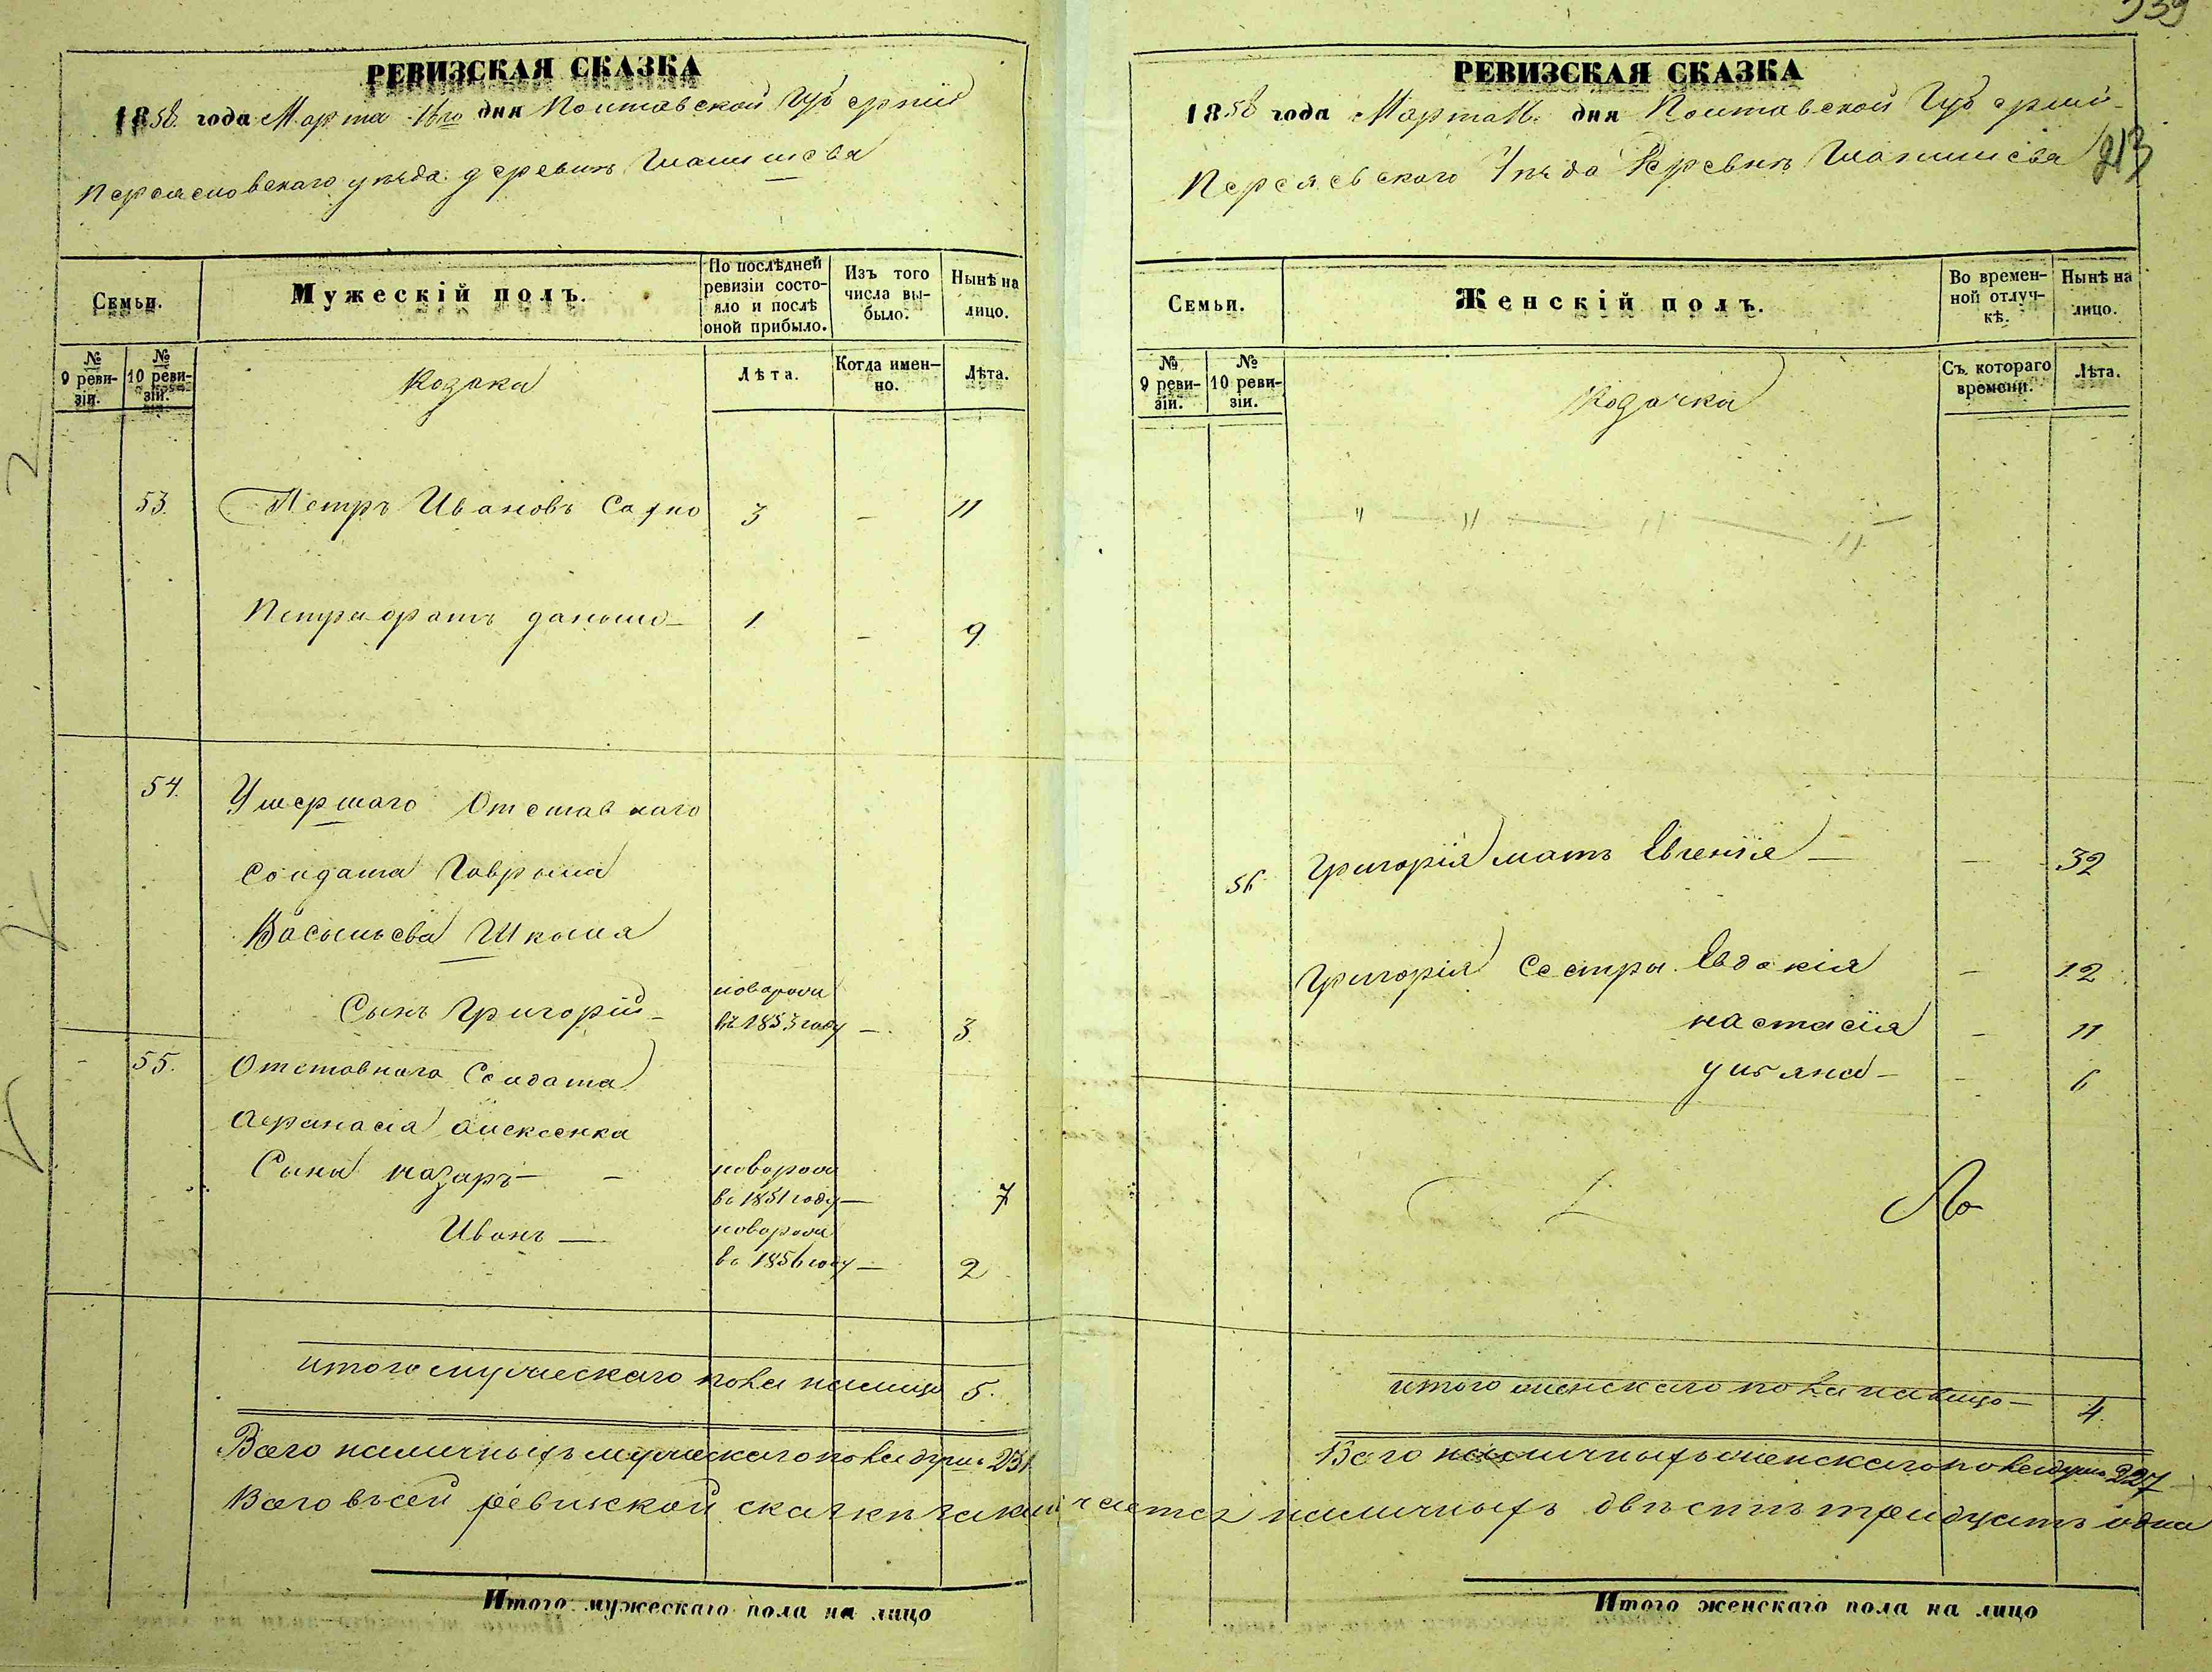 539
РЕВИЗСКАЯ СКАЗКА
1858 года Марта 16го дня Полтавской Губерніи
Переясловского уезда деревни
213
Семьи.
Мужескій полъ.
По послѣдней ревизіи состояло и послѣ оной прибыло.
Изъ того числа выбыло.
Нынѣ на лицо.
№ 9 ревизіи.
№ 10 ревизіи.
Козаки
Лѣта.
Когда именно.
Лѣта.
53. Петръ Ивановъ 3 — 11
Петра братъ Данило — 1 — 9
54. Умершаго Отставнаго
Солдата Гаврыла
Васыльева Шкыля
Сынъ Григорій — новорож
въ 1853 году — 3
55. Отставнаго Солдата
Афанасія Алексеенка
Сына Назаръ — — новорож
во 1851 году — 7
Иванъ — новорож
во 1856 году — 2
итого мужескаго пола налицо 5.
Всего наличныхъ мужескаго пола душъ 231
Всего въ сей ревизской сказкѣ заключается наличныхъ двѣсти тридцать одна
Итого мужескаго пола на лицо
РЕВИЗСКАЯ СКАЗКА
1858 года Марта 16. дня Полтавской Губерніи
Уезда Деревне
Семьи.
Женскій полъ.
Во временной отлучкѣ.
Нынѣ на лицо.
№ 9 ревизіи.
№ 10 ревизіи.
Козачки
Съ котораго времени.
Лѣта.
" — " — " — " —
Григорія мать Евгенія — — 32
Григорія Сестры Евдокія — 12
настасія — 11
уляна — — 6
итого женскаго пола налицо — 4.
Всего наличныхъ женскаго пола душъ 227
Итого женскаго пола на лицо